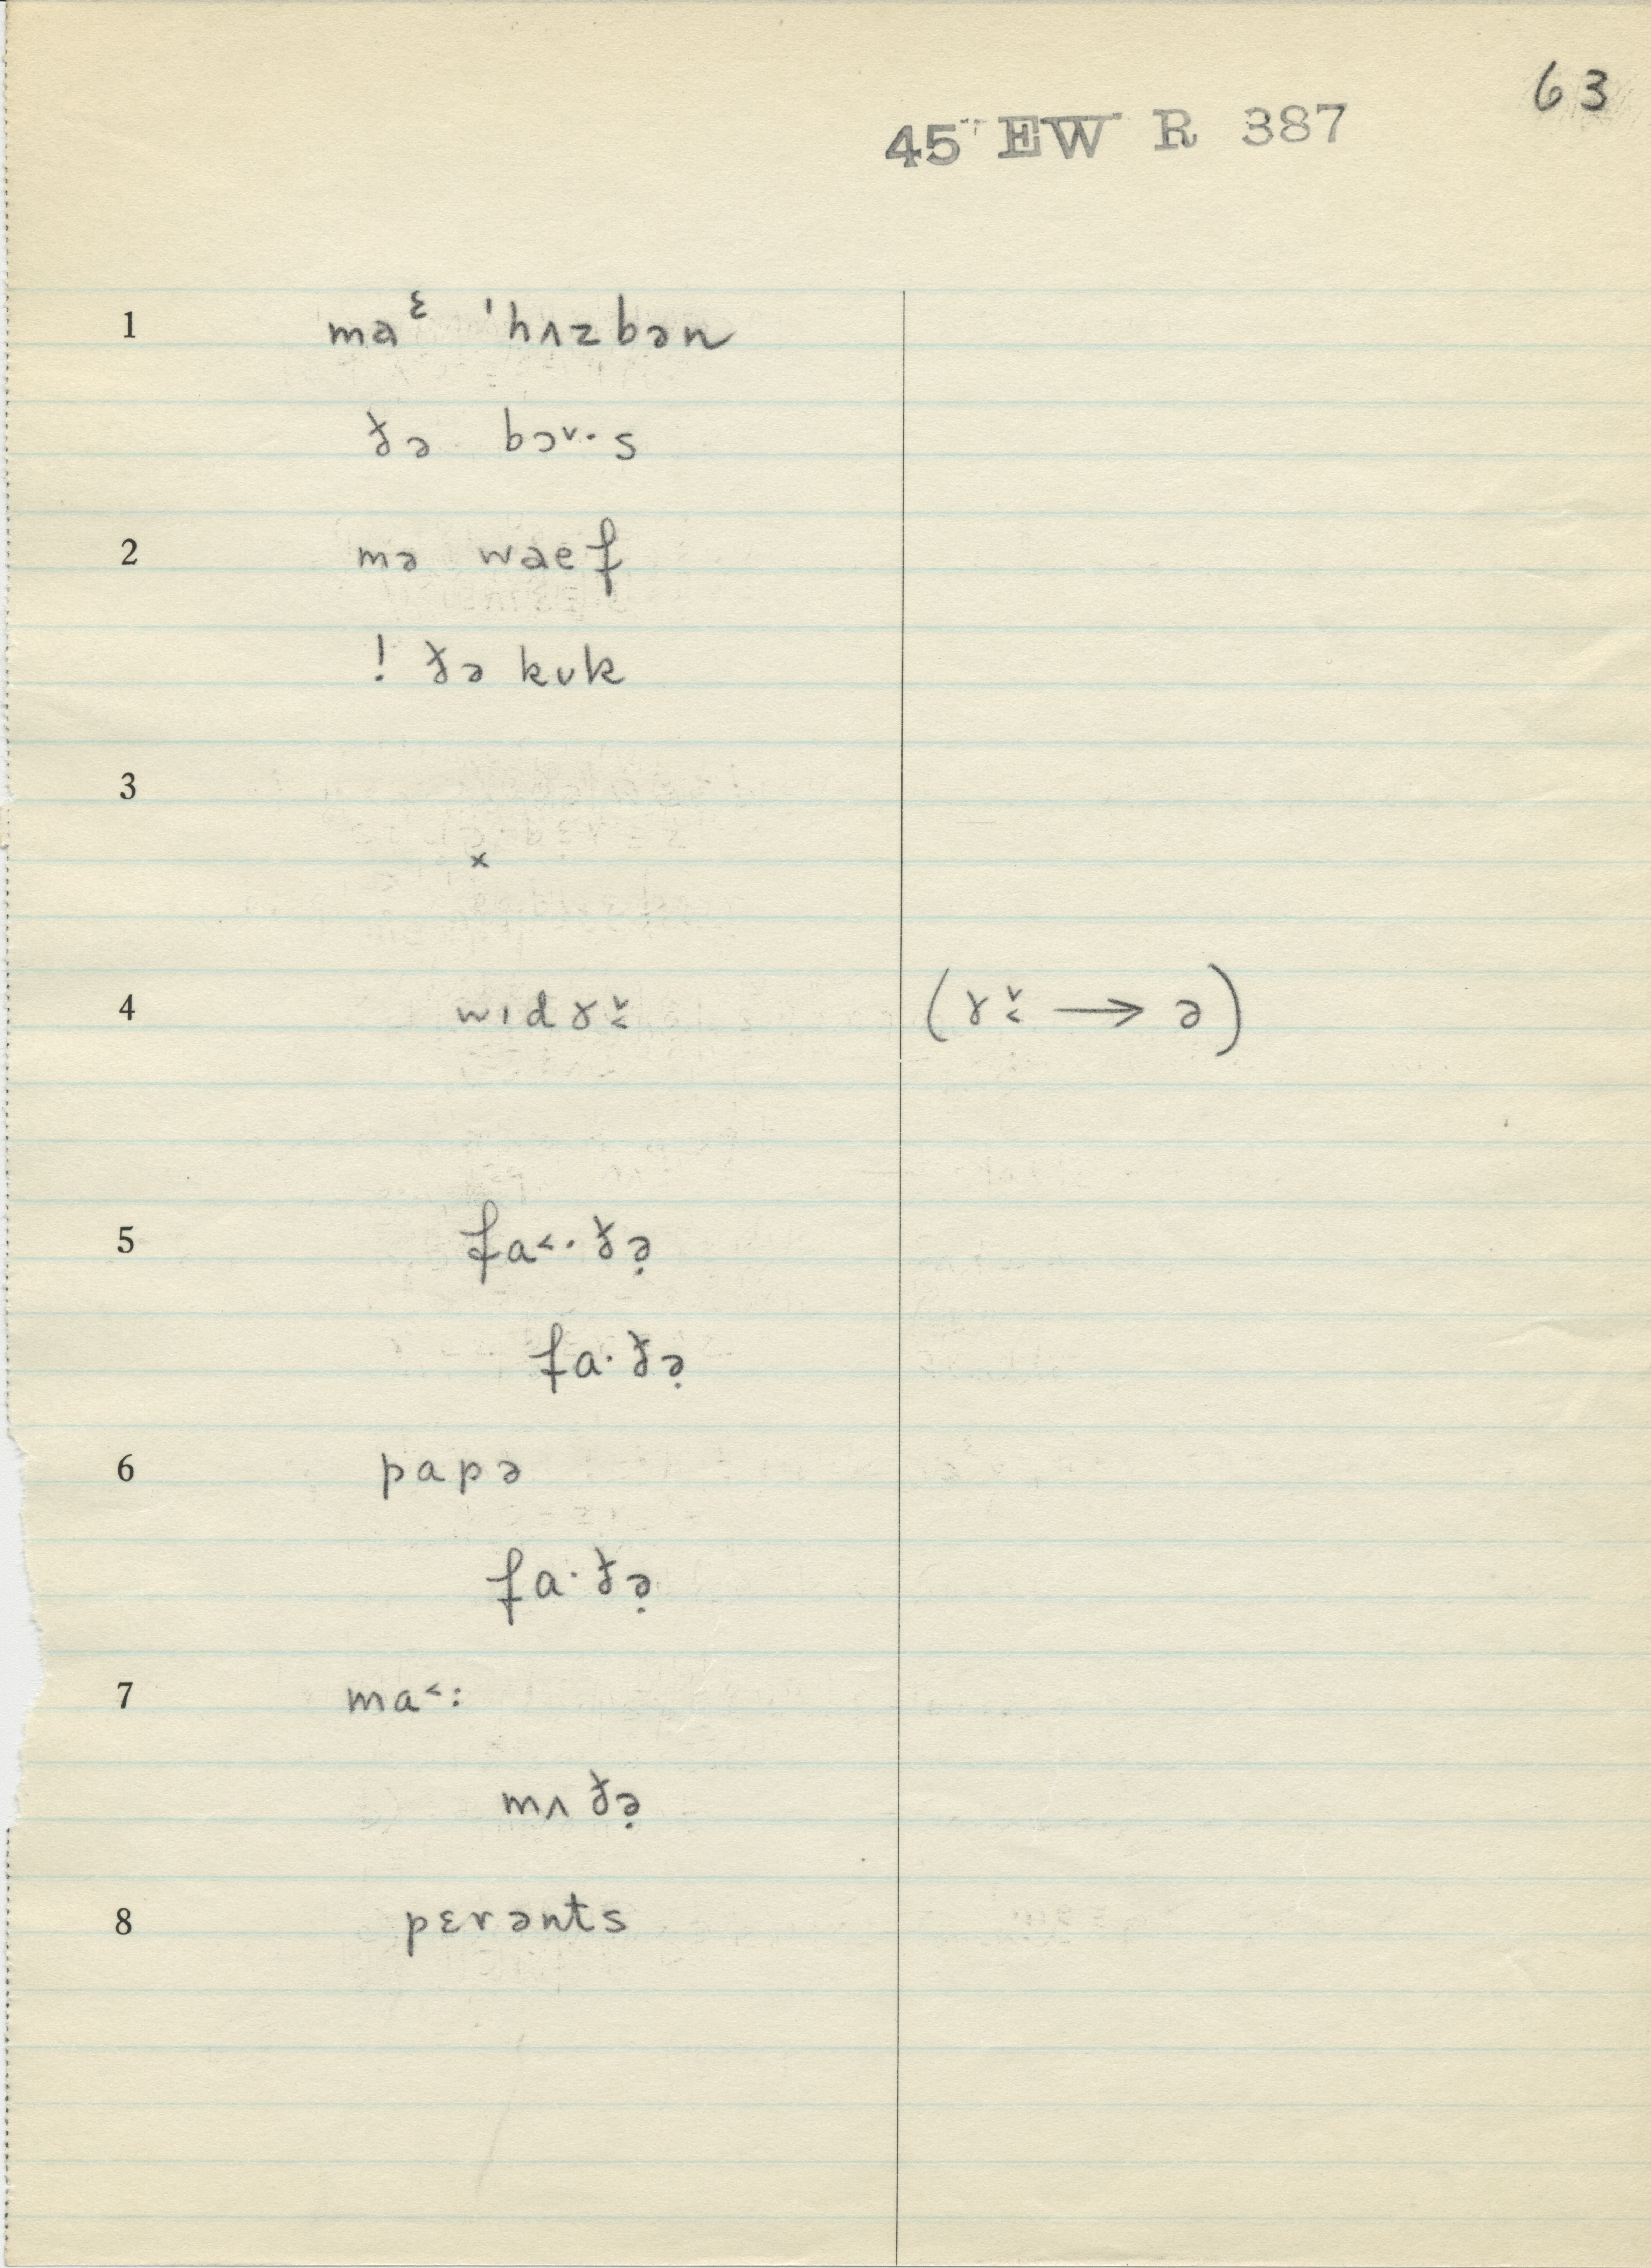 63
45 EW R 387
1 maᵋ ˈhʌzbən
ðə bɔ˅·s
2 mə waef
! ðə kʊk
3
×
4 wɪdɤ˅˂ (ɤ˅˂ → ə)
5 fa˂·ðə̣
fa·ðə̣
6 papə
fa·ðə̣
7 ma˂:
mʌðə̣
8 pɛrənts